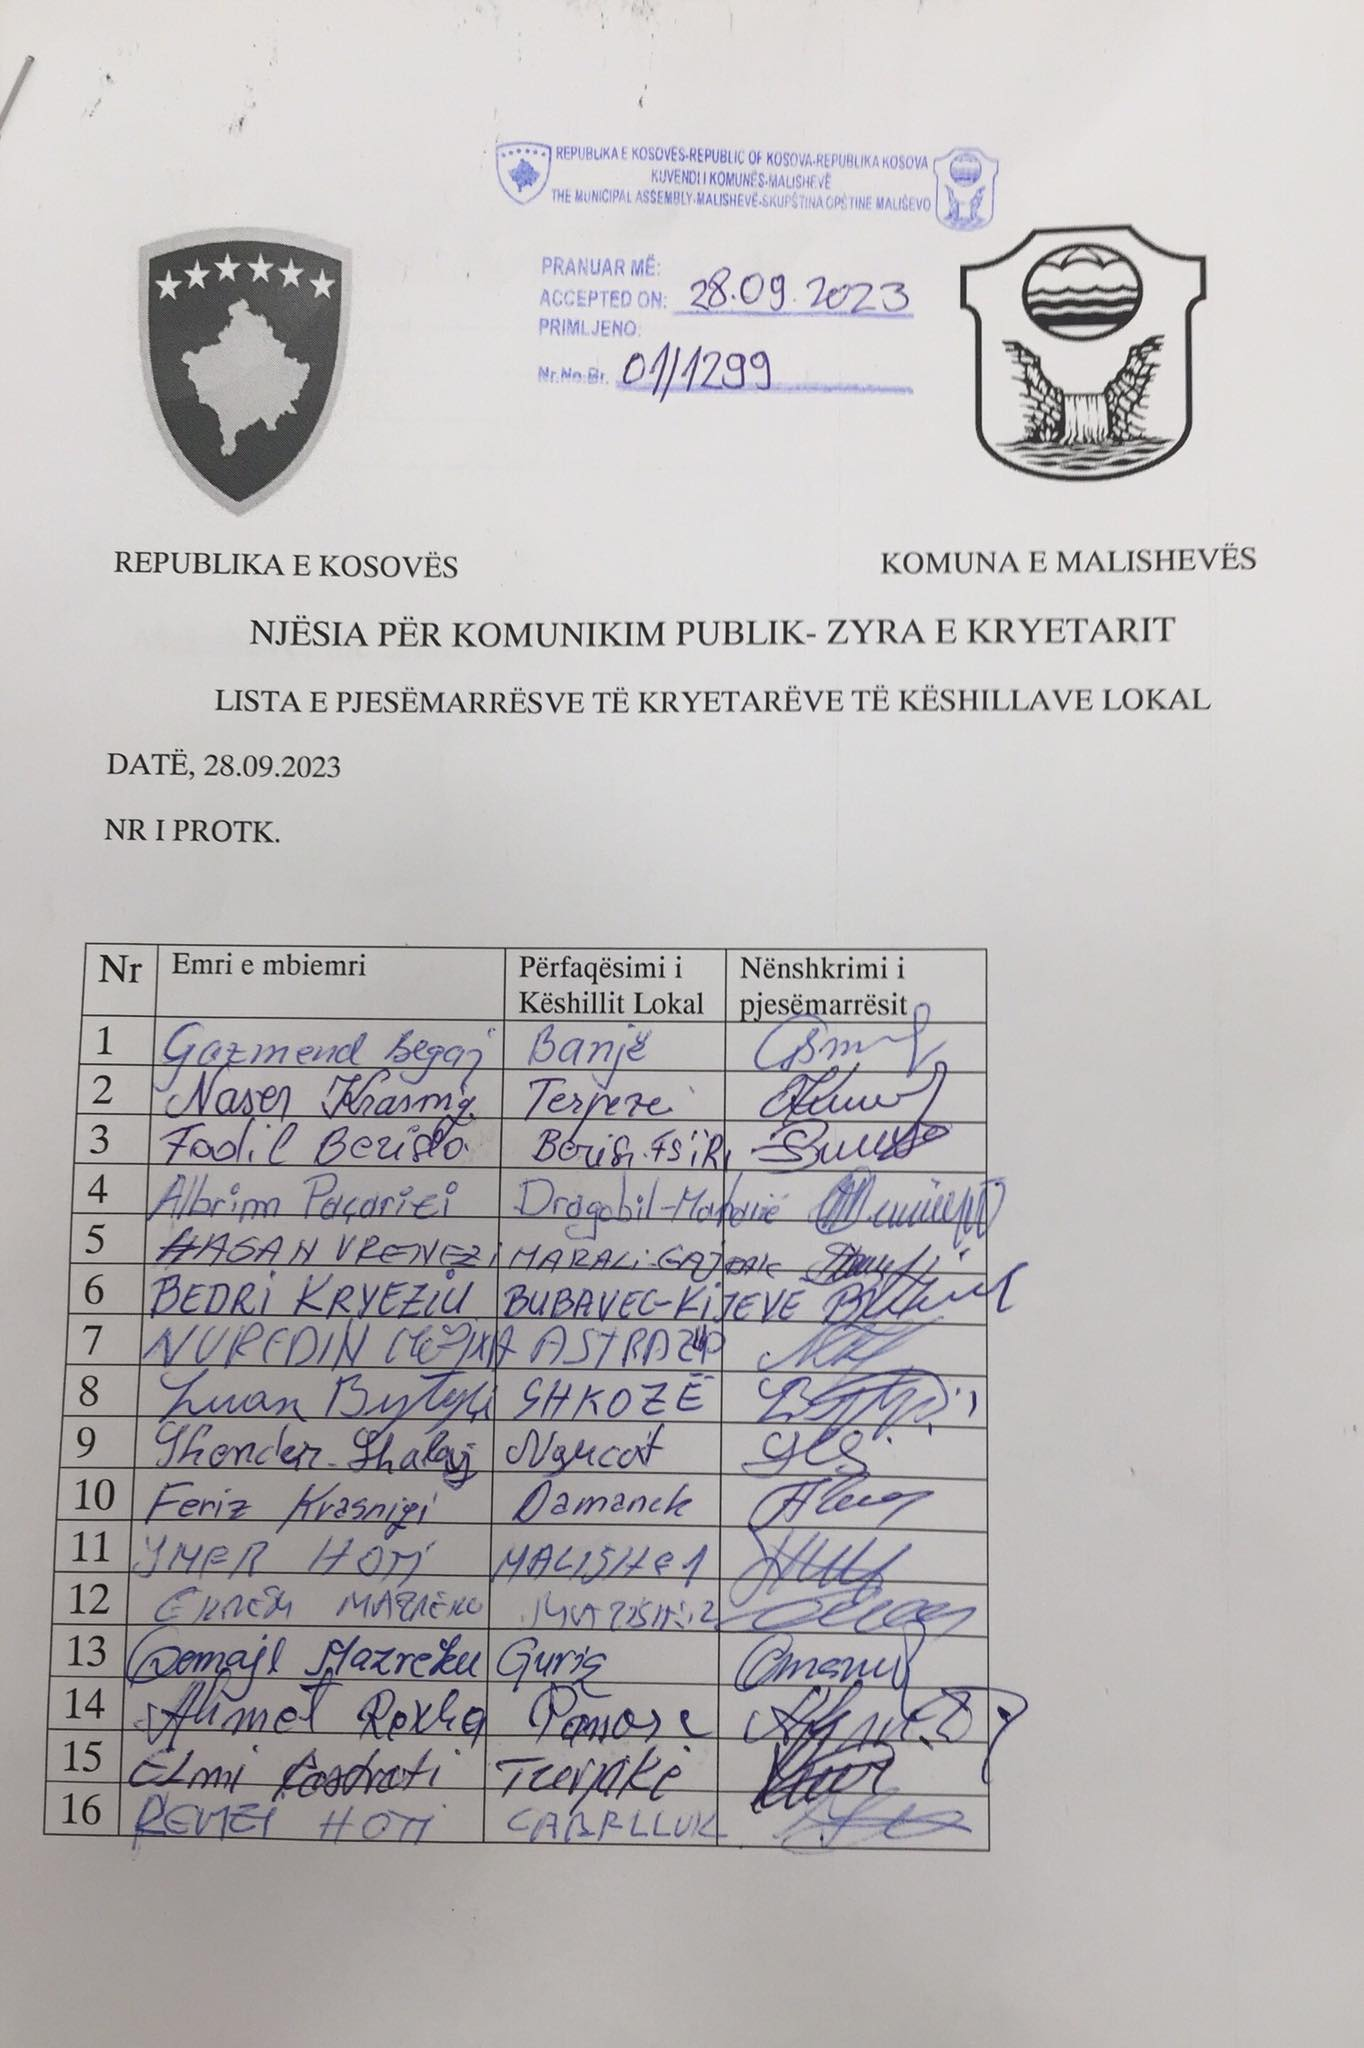 REPUBLIKA E KOSOVËS-REPUBLIC OF KOSOVA-REPUBLIKA KOSOVA
KUVENDI I KOMUNËS-MALISHEVË
THE MUNICIPAL ASSEMBLY-MALISHEVË-SKUPŠTINA OPŠTINE MALIŠEVO
PRANUAR MË:
ACCEPTED ON: 28.09.2023
PRIMLJENO:
Nr.No.Br. 01/1299
REPUBLIKA E KOSOVËS KOMUNA E MALISHEVËS
NJËSIA PËR KOMUNIKIM PUBLIK- ZYRA E KRYETARIT
LISTA E PJESËMARRËSVE TË KRYETARËVE TË KËSHILLAVE LOKAL
DATË, 28.09.2023
NR I PROTK.
Nr Emri e mbiemri Përfaqësimi i Këshillit Lokal Nënshkrimi i pjesëmarrësit
1 Gazmend Begaj Banjë
2 Naser Terpeze
3 Fadil Berisha
4 Albrim Paçarizi Dragobil-
5 HASAN VRENEZI MARALI-
6 BEDRI KRYEZIU BUBAVEC-KIJEVE
7 NUREDIN ASTRAZUP
8 Luan Bytyçi SHKOZË
9 Ngucat
10 Feriz Krasniqi Damanek
11 YMER HOTI MALISHE 1
12
13 Mazreku Guriq
14 Ahmet Rexha
15 Elmi Kastrati Turjakë
16 REMZI HOTI